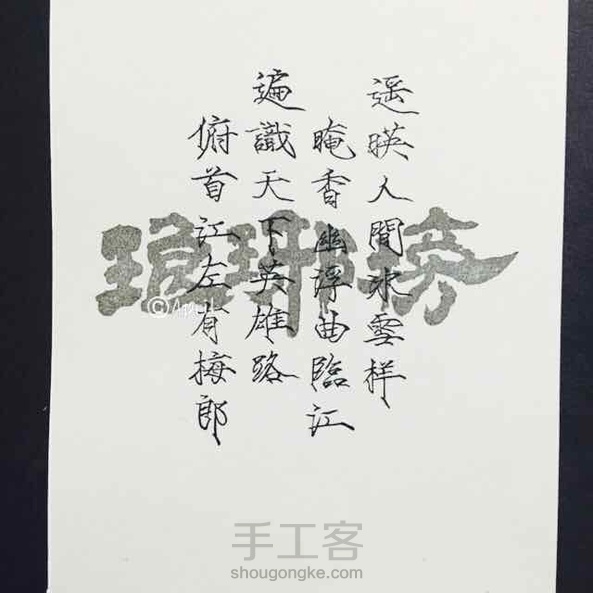 遥暎人間氷雪样
晻香幽浮曲臨江
遍識天下英雄路
俯首江左有梅郎
琅琊榜
手工客
shougongke.com